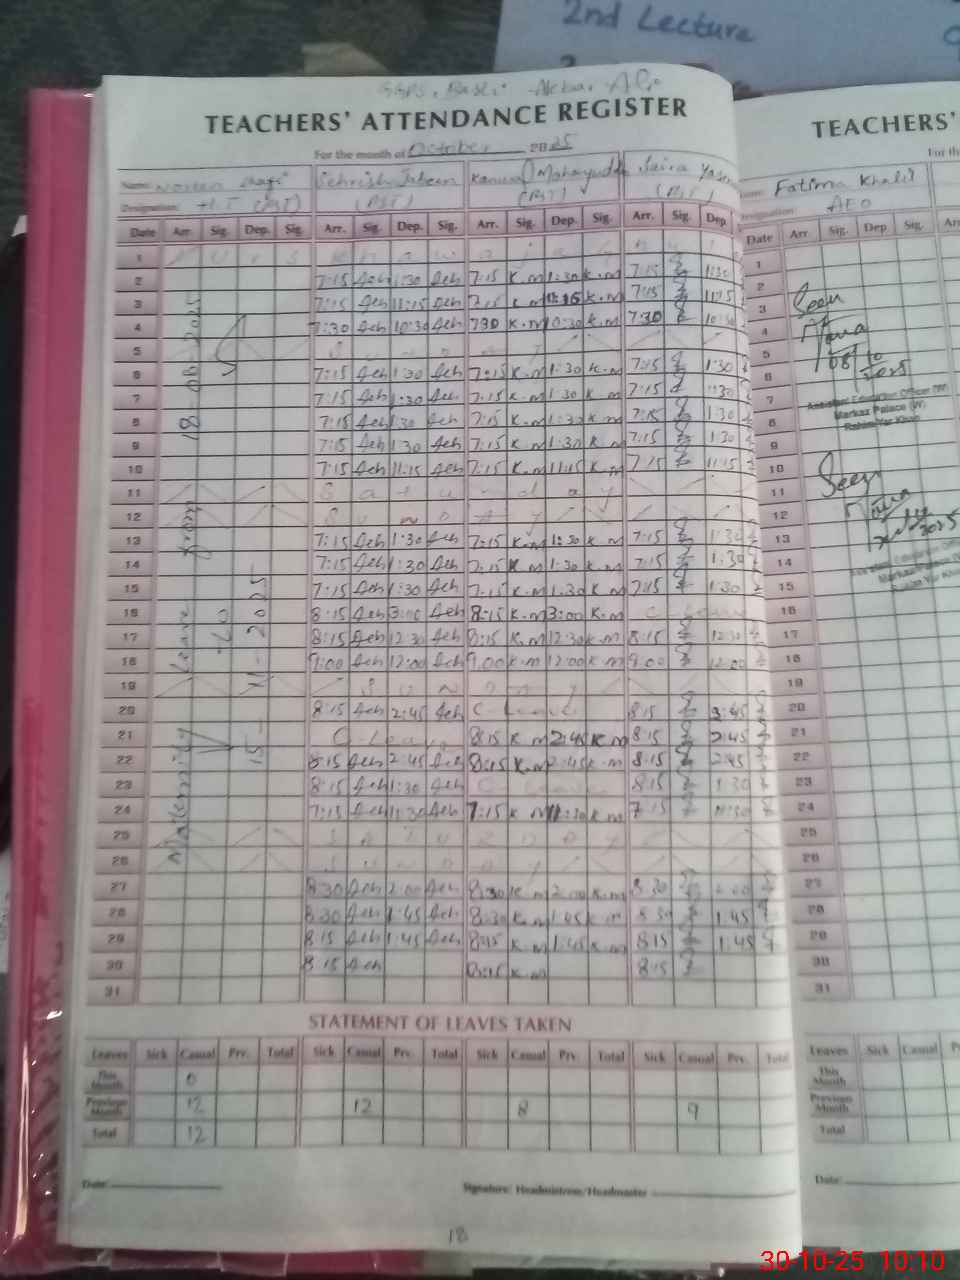 2nd Lecture
TEACHERS' ATTENDANCE REGISTER
For the month of October 2025
Name: Sehrish Jabeen Kanwal Saira
Designation: H.T (PST) (PST) (PST) (PST)
Date Arr. Sig. Dep. Sig. Arr. Sig. Dep. Sig. Arr. Sig. Dep. Sig. Arr. Sig. Dep.
1
2 7:15 Seh 1:30 Seh 7:15 K.m 1:30 K.m 7:15 1:30
3 7:15 Seh 11:15 Seh 7:15 K.m 11:15 K.m 7:15 11:15
4 7:30 Seh 10:30 Seh 7:30 K.m 10:30 K.m 7:30 10:30
5 Sunday
6 7:15 Seh 1:30 Seh 7:15 K.m 1:30 K.m 7:15 1:30
7 7:15 Seh 1:30 Seh 7:15 K.m 1:30 K.m 7:15 1:30
8 7:15 Seh 1:30 Seh 7:15 K.m 1:30 K.m 7:15 1:30
9 7:15 Seh 1:30 Seh 7:15 K.m 1:30 K.m 7:15 1:30
10 7:15 Seh 11:15 Seh 7:15 K.m 11:15 K.m 7:15 11:15
11 Saturday
12 Sunday
13 7:15 Seh 1:30 Seh 7:15 K.m 1:30 K.m 7:15 1:30
14 7:15 Seh 1:30 Seh 7:15 K.m 1:30 K.m 7:15 1:30
15 7:15 Seh 1:30 Seh 7:15 K.m 1:30 K.m 7:15 1:30
16 8:15 Seh 3:00 Seh 8:15 K.m 3:00 K.m C-Leave
17 8:15 Seh 12:30 Seh 8:15 K.m 12:30 K.m 8:15 12:30
18 9:00 Seh 12:00 Seh 9:00 K.m 12:00 K.m 9:00 12:00
19 Sunday
20 8:15 Seh 2:45 Seh C-Leave 8:15 2:45
21 C-Leave 8:15 K.m 2:45 K.m 8:15 2:45
22 8:15 Seh 2:45 Seh 8:15 K.m 2:45 K.m 8:15 2:45
23 8:15 Seh 1:30 Seh C-Leave 8:15 1:30
24 7:15 Seh 11:30 Seh 7:15 K.m 11:30 K.m 7:15 11:30
25 SATURDAY
26 SUNDAY
27 8:30 Seh 2:00 Seh 8:30 K.m 2:00 K.m 8:30 2:00
28 8:30 Seh 1:45 Seh 8:30 K.m 1:45 K.m 8:30 1:45
29 8:15 Seh 1:45 Seh 8:15 K.m 1:45 K.m 8:15 1:45
30 8:15 Seh 8:15 K.m 8:15
31
Maternity leave from 18-08-2025
to
15-11-2025
STATEMENT OF LEAVES TAKEN
Leaves Sick Casual Prv. Total Sick Casual Prv. Total Sick Casual Prv. Total Sick Casual Prv. Total
This Month 0
Previous Month 12 12 8 9
Total 12
Date: Signature: Headmistress/Headmaster
18
TEACHERS'
For th
Fatima Khalil
Designation: AEO
Date Arr. Sig. Dep Sig. Arr
1
2
3
4
5
6
7
8
9
10
11
12
13
14
15
16
17
18
19
20
21
22
23
24
25
26
27
28
29
30
31
Seen
08/10
2025
Assistant Education Officer (W)
Markaz Palace (W)
Rahim Yar Khan
Seen
2025
Leaves Sick Casual P
This Month
Previous Month
Total
Date:
30-10-25 10:10